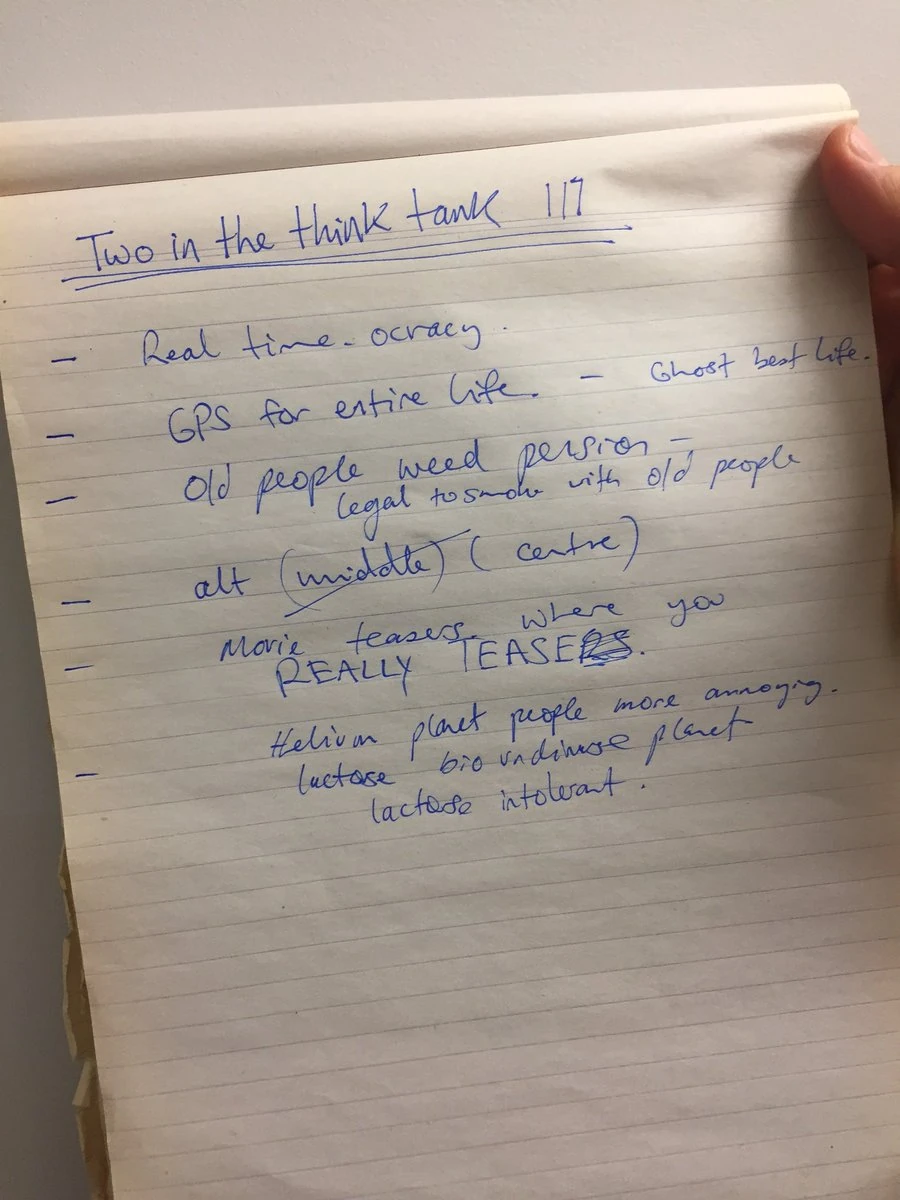 Two in the think tank 117
- Real time-ocracy.
- GPS for entire life. - Ghost best life.
- Old people weed pension -
legal to smoke with old people
- alt (middle) (centre)
- Movie teasers where you
REALLY TEASE.
- Helium planet people more annoying.
lactose bio planet
lactose intolerant.